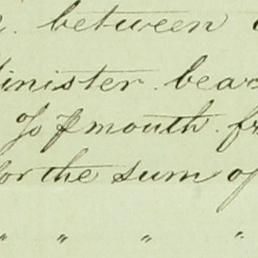 between
inister bear
% ⅌ mouth fr
for the sum of
" " " "